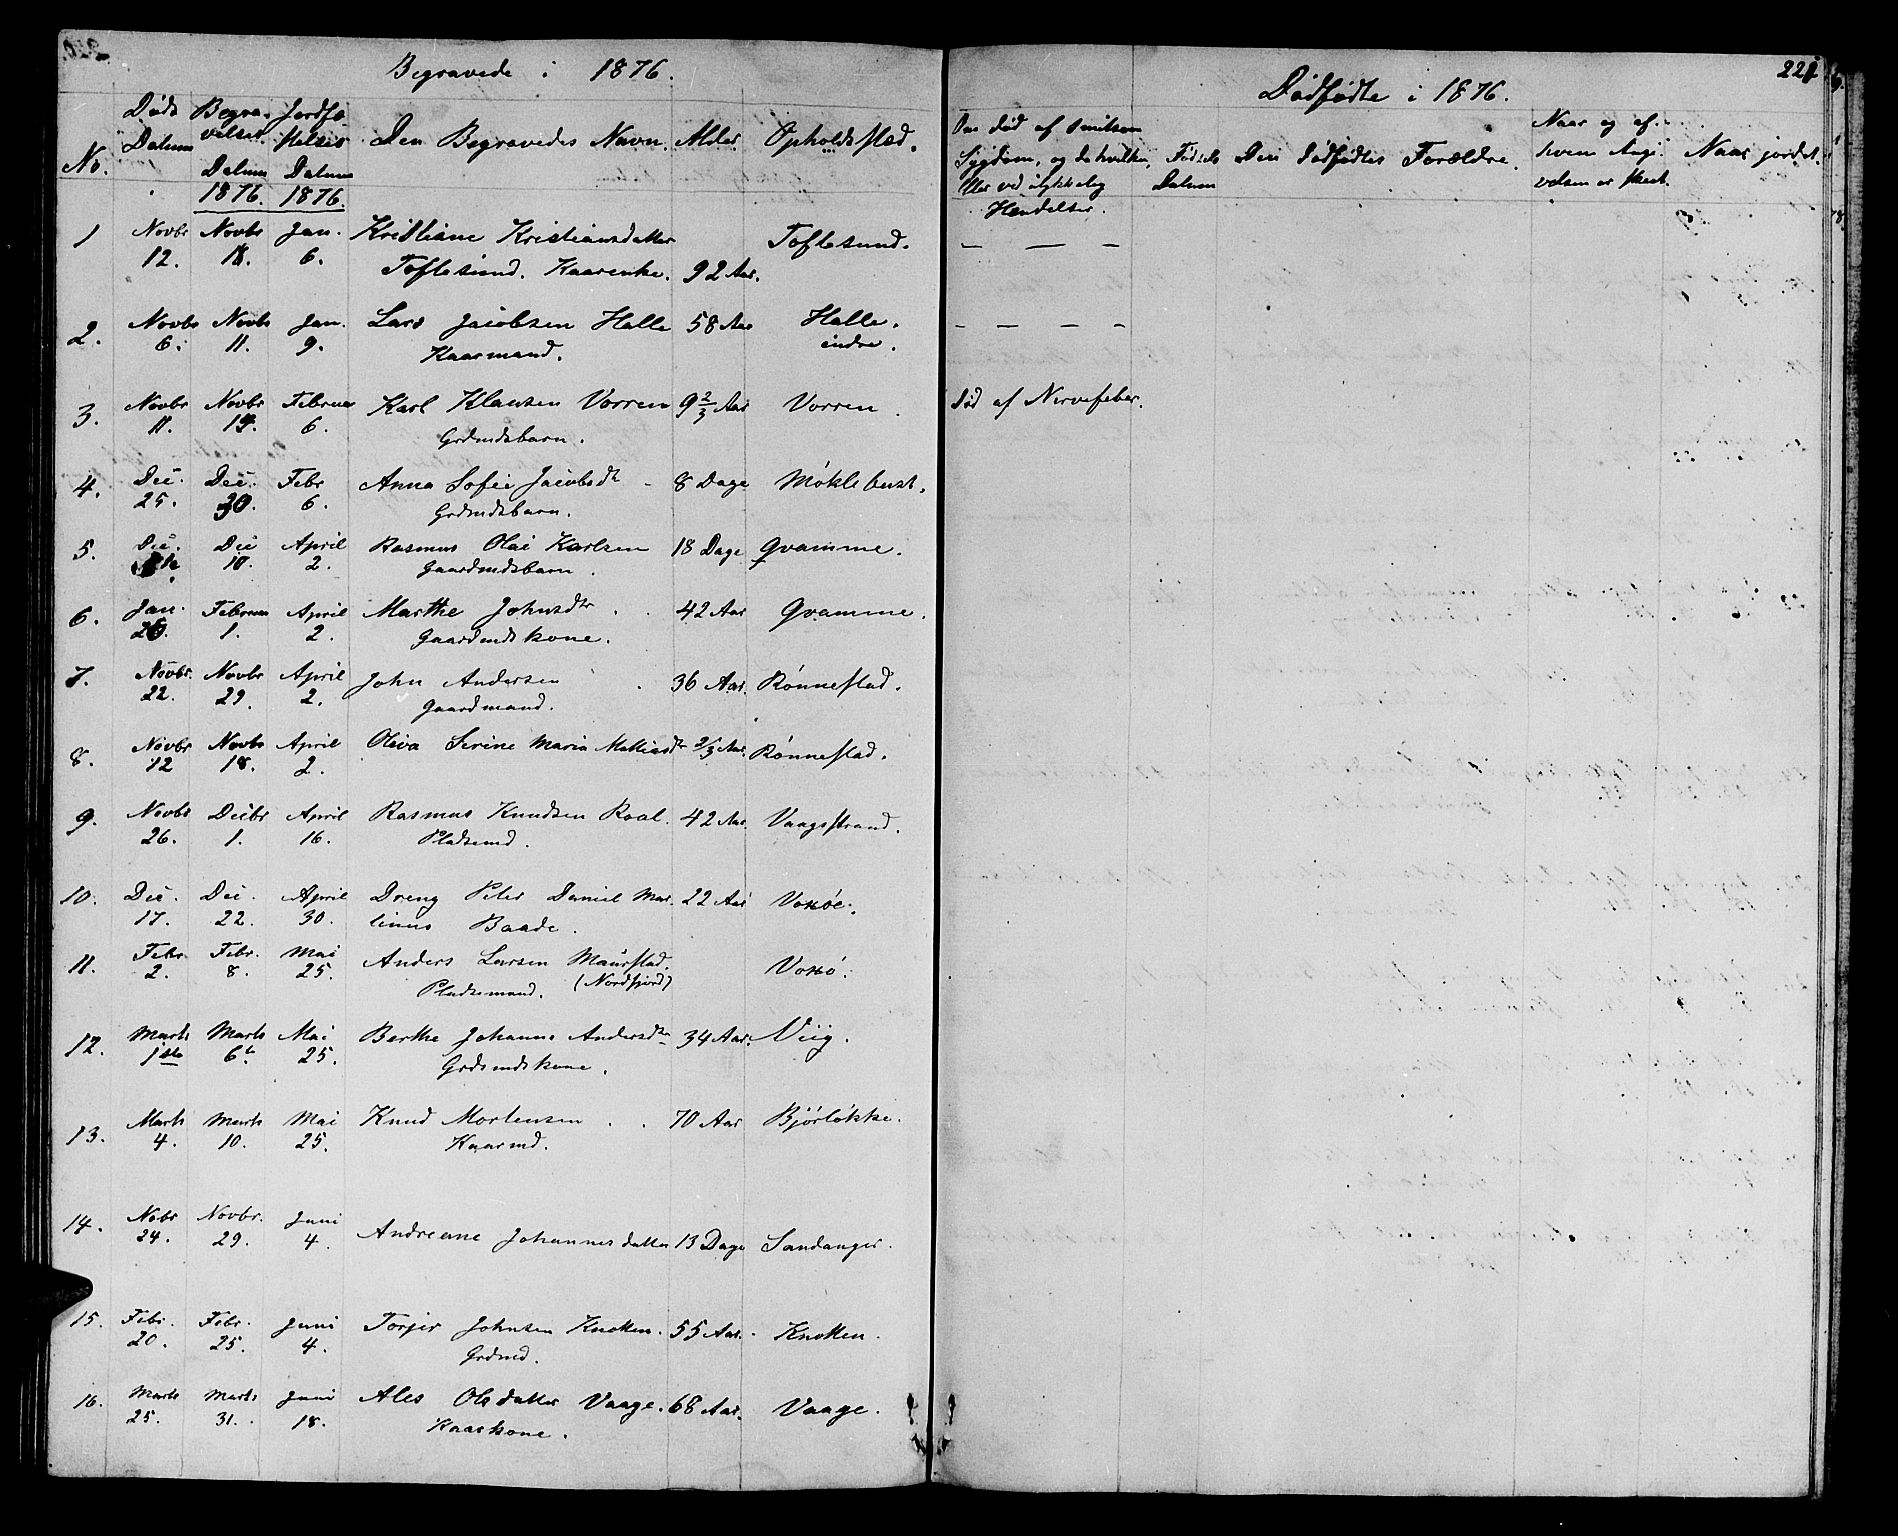 Begravede i 1876.
No. Døds Datum Begravelses Datum 1876. Jordfæstelses Datum 1876. Den Begravedes Navn. Alder. Opholdssted.
1 Novbr 12. Novbr 18. Jan. 6. Kristiane Kristiansdatter Toflesund. Kaarenke. 92 Aar. Toflesund. — — —
2. Novbr 6. Novbr 11. Jan. 9. Lars Jacobsen Halle Kaarmand. 58 Aar Halle indre. — — — —
3. Novbr 11. Novbr Februar 6. Karl Klausen Vorren Grdmdsbarn. 9 2/3 Aar Vorren. Død af Nervefeber.
4. Dec. 25. Dec. 30. Febr 6. Anna Sofie Jacobsdtr Grdmdsbarn. 8 Dage Møklebust.
5. Dec. Dec 10. April 2. Rasmus Olai Karlsen Gaardmdsbarn. 18 Dage Qvamme.
6. Jan. Februar 1. April 2. Marthe Johnsdtr Gaardmdskone. 42 Aar Qvamme.
7. Novbr. 22. Novbr 29. April 2. John Andersen Gaardmand. 36 Aar. Rønnestad.
8. Novbr 12 Novbr 18. April 2. Oliva Serine Maria Mathiasdtr 2/3 Aar. Rønnestad.
9. Novbr 26. Decbr 1. April 16. Rasmus Knudsen Roal Pladsmd. 42 Aar. Vaagstrand.
10. Dec. 17. Dec. 22. April 30. Dreng Peter Daniel Martinus Baade. 22 Aar
11. Febr. 2. Febr. 8. Mai 25. Anders Larsen Maurstad. (Nordfjord) Pladsemand.
12. Marts 1ste Marts 6te Mai 25. Berthe Johanne Andersdtr Grdmdskone. 34 Aar. Viig.
13. Marts 4. Marts 10. Mai 25. Knud Mortensen Kaarmd. 70 Aar Bjørløkke.
14. Nobr 24. Novbr. 29. Juni 4. Andreane Johannesdatter 13 Dage Sandanger.
15. Febr. 20. Febr. 25. Juni 4. Torjer Johnsen Knotten. Grdmd. 55 Aar. Knotten.
16. Marts 25. Marts 31. Juni 18. Ales Olsdatter Vaage. Kaarkone. 68 Aar. Vaage.
221
Dødfødte i 1876.
Om død af smitsom Sygdom, og da hvilken, eller ved ulykkelig Hændelser. Fødsels Datum Den dødfødtes Forældre. Naar og af hvem Angivelsen er skeet. Naar jordet.